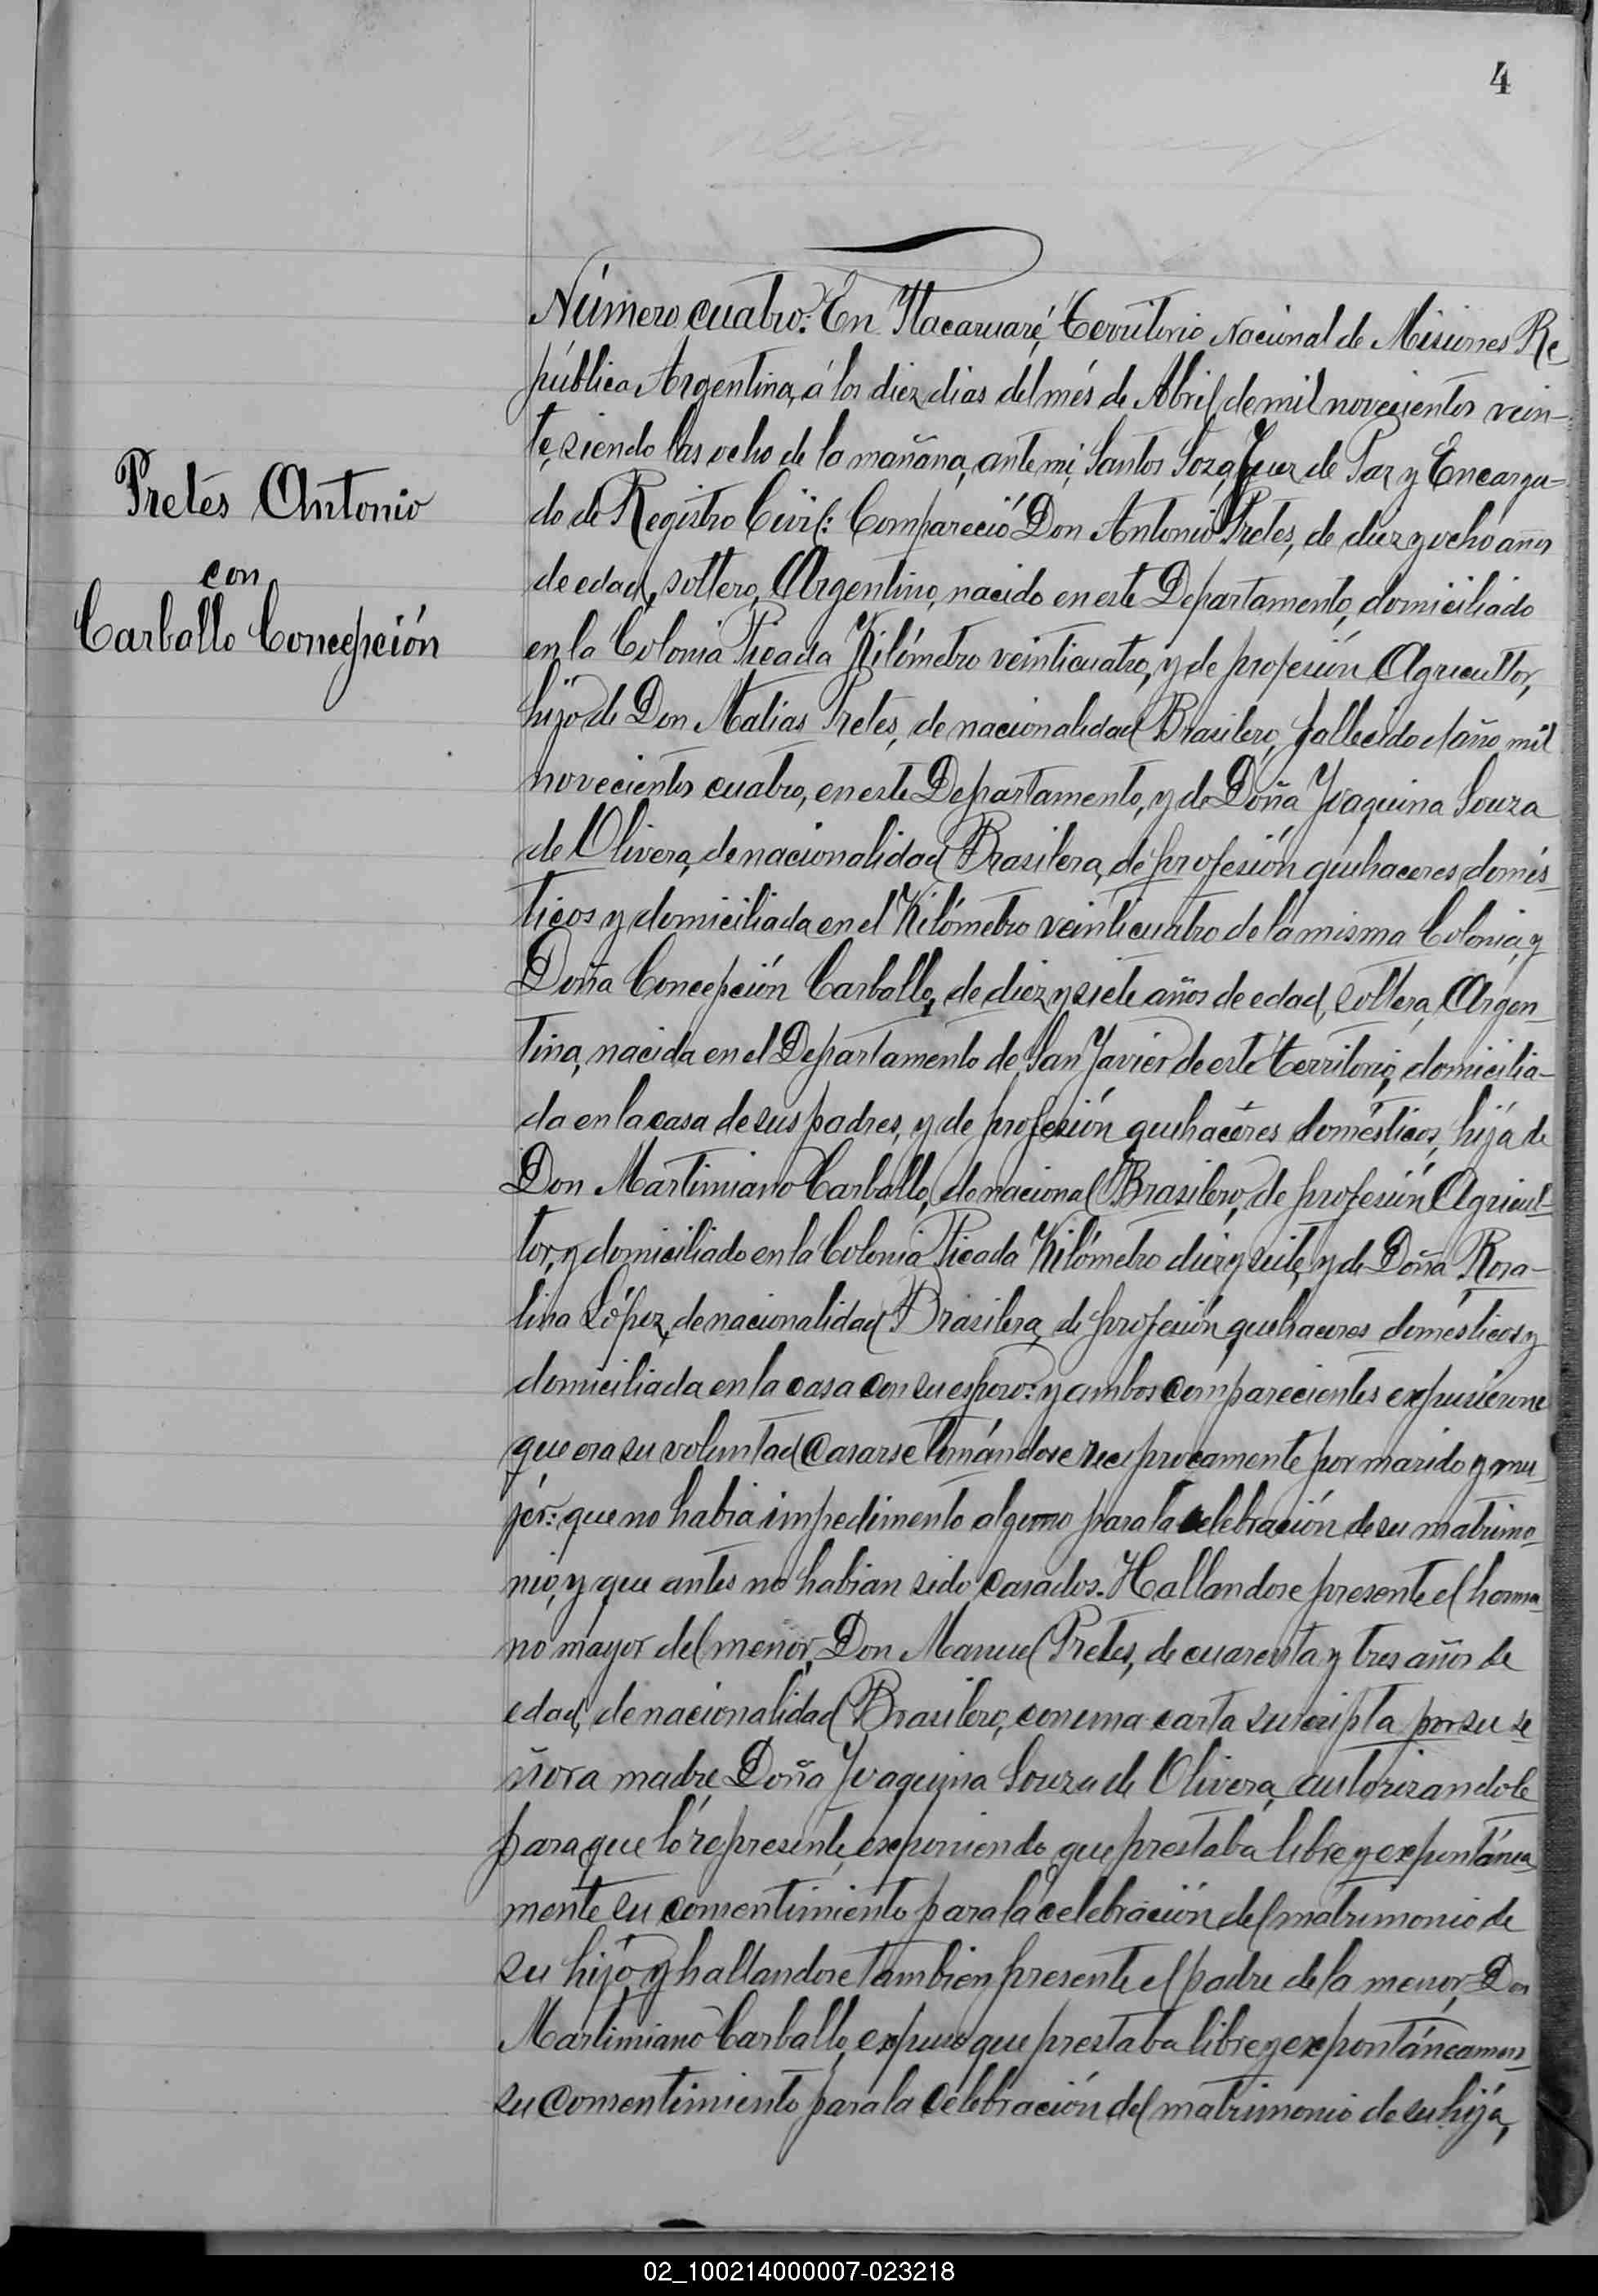 4
Pretes Antonio
con
Carballo Concepción
Número cuatro: En Itacaruaré, territorio Nacional de Misiones Re
pública Argentina, á los diez dias del més de Abril de mil novecientos vein-
te, siendo las ocho de la mañana, ante mi, Santos Soza, Juez de Paz y Encarga-
do de Registro Civil: Compareció Don Antonio Pretes, de diez y ocho años
de edad, soltero, Argentino, nacido en este Departamento, domiciliado
en la Colonia Picada Kilómetro veinticuatro, y de profesión Agricultor,
hijo de Don Matias Pretes, de nacionalidad Brasilero, fallecido el año mil
novecientos cuatro, en este Departamento, y de Doña Joaquina Souza
de Olivera, de nacionalidad Brasilera, de profesión quehaceres domés-
ticos y domiciliada en el Kilómetro veinticuatro de la misma Colonia, y
Doña Concepción Carballo, de diez y siete años de edad, soltera, Argen-
tina, nacida en el Departamento de San Javier de este territorio, domicilia-
da en la casa de sus padres, y de profesión quehaceres domésticos, hija de
Don Martimiano Carballo, de nacional Brasilero, de profesión Agricul-
tor, y domiciliado en la Colonia Picada Kilómetro diez y siete, y de Doña Rosa-
lina López, de nacionalidad Brasilera, de profesión quehaceres domésticos y
domiciliada en la casa con su esposo: y ambos comparecientes expusierone
que era su voluntad casarse tomándose reciprocamente por marido y mu-
jér: que no habia impedimento alguno para la celebración de su matrimo-
nio, y que antes no habian sido casados. Hallandose presente el herma-
no mayor del menor, Don Manuel Pretes, de cuarenta y tres años de
edad, de nacionalidad Brasilero, con una carta suscripta por su se
ñora madre Doña Joaquina Souza de Olivera, autorizandole
para que ló represente, exponiendo que prestaba libre y expontánea
mente su consentimiento para la celebración del matrimonio de
su hijo, y hallandose tambien presente el padre de la menor, Don
Martimiano Carballo, expuso que prestaba libre y expontáneamen-
su consentimiento para la celebración del matrimonio de su hija,
02_100214000007-023218